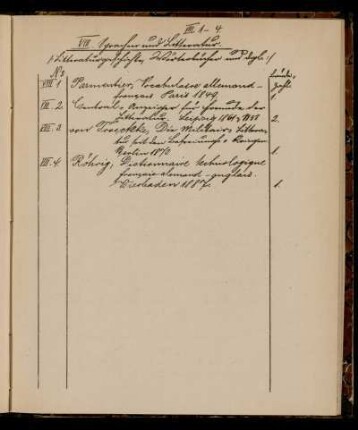 VIII. 1-4.
VIII. Sprachen und Litteratur.
/: Litteraturgeschichte, Wörterbücher und dgl. :/
No.
Bände-
zahl.
VIII. 1. Parmentier, Vocabulaire allemand-
français Paris 1849. 1
VIII. 2. Central-Anzeiger für Freunde der
Litteratur. Leipzig 2.
VIII. 3. von Troschke, Die Militair-Littera-
tur seit den Befreiungs-Kriegen
Berlin 1870. 1.
VIII. 4. Röhrig, Dictionnaire technologique
français-allemand-anglais.
Wiesbaden 1887. 1.